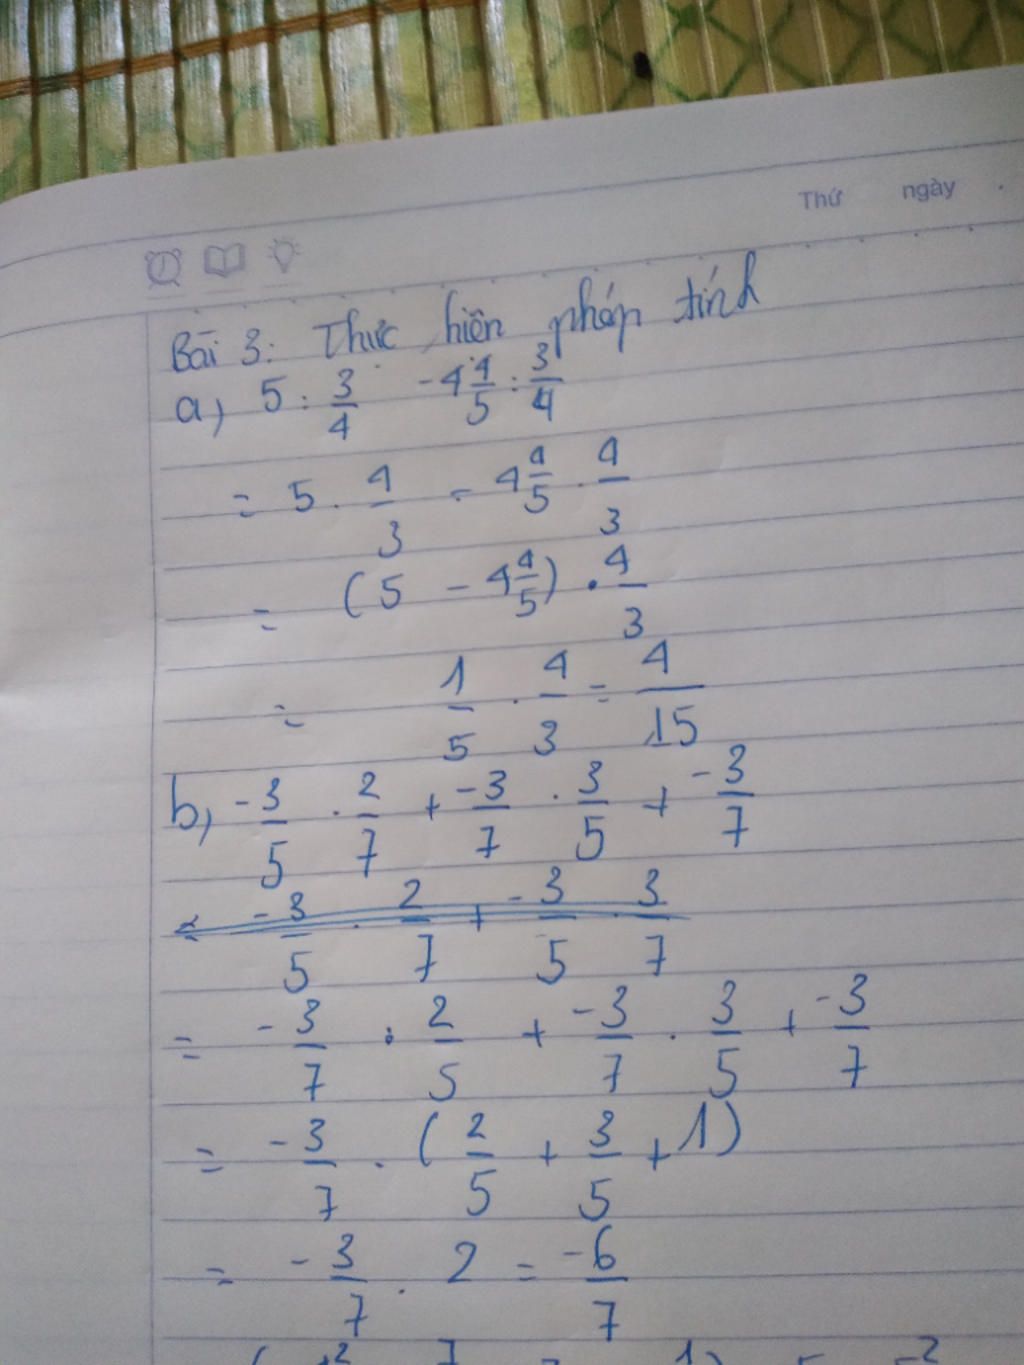 Thứ ngày .
Bài 3: Thực hiện pháp tính
a, 5 : 3/4 - 4 4/5 : 3/4
= 5 . 4/3 - 4 4/5 . 4/3
= (5 - 4 4/5) . 4/3
= 1/5 . 4/3 = 4/15
b, -3/5 . 2/7 + -3/7 . 3/5 + -3/7
= -3/5 . 2/7 + -3/5 . 3/7
= -3/7 . 2/5 + -3/7 . 3/5 + -3/7
= -3/7 . (2/5 + 3/5 + 1)
= -3/7 . 2 = -6/7